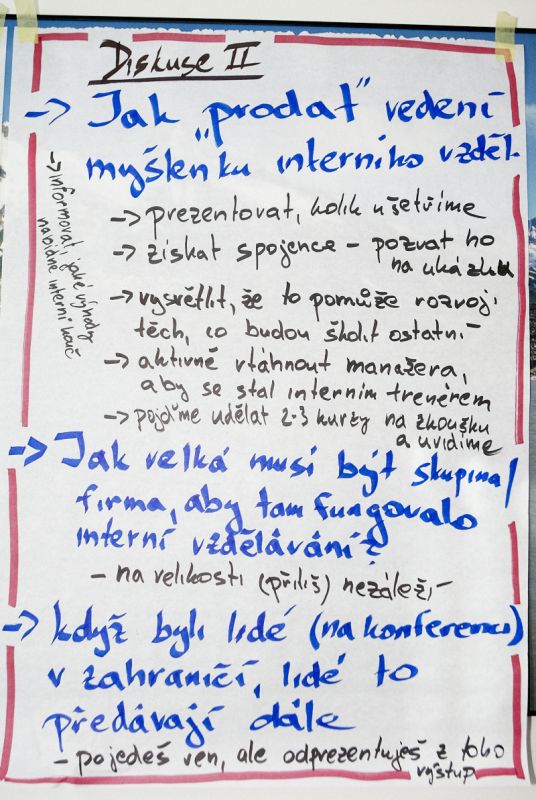 Diskuse II
-> Jak „prodat" vedení
myšlenku interního vzděl.
-> prezentovat, kolik ušetříme
-> získat spojence – pozvat ho
na ukázku
-> vysvětlit, že to pomůže rozvoji
těch, co budou školit ostatní
-> aktivně vtáhnout manažera,
aby se stal interním trenérem
-> pojďme udělat 2-3 kurzy na zkoušku
a uvidíme
-> informovat, jaké výhody
nabídne interní kouč
-> Jak velká musí být skupina/
firma, aby tam fungovalo
interní vzdělávání?
- na velikosti (příliš) nezáleží
-> když byli lidé (na konferenci)
v zahraničí, lidé to
předávají dále
- pojedeš ven, ale odprezentuješ z toho
výstup